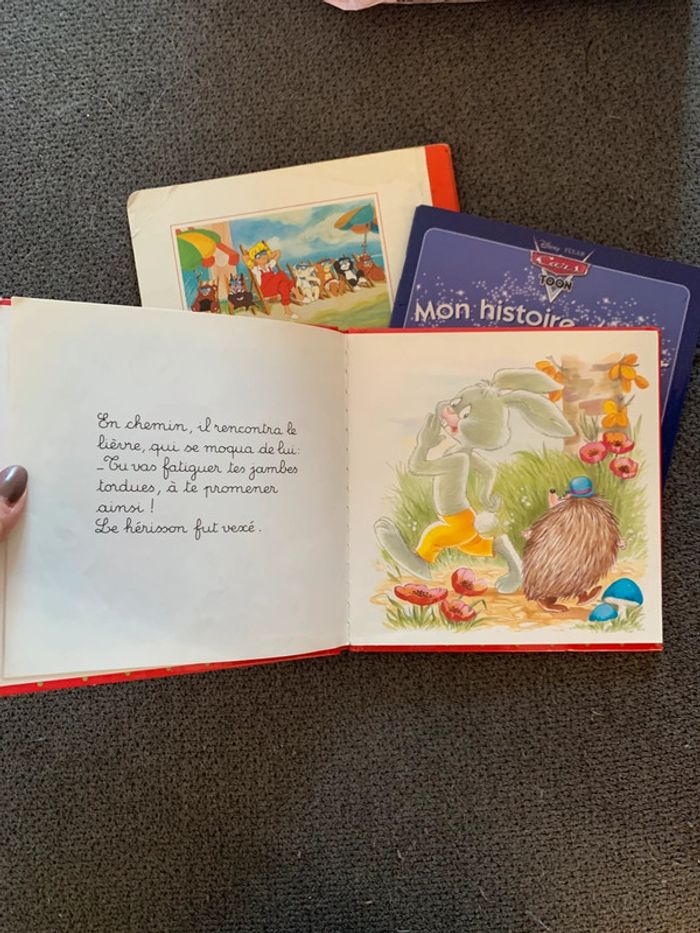 Disney PIXAR
Cars
TOON
Mon histoire
En chemin, il rencontra le
lièvre, qui se moqua de lui :
_Tu vas fatiguer tes jambes
tordues, à te promener
ainsi !
Le hérisson fut vexé.